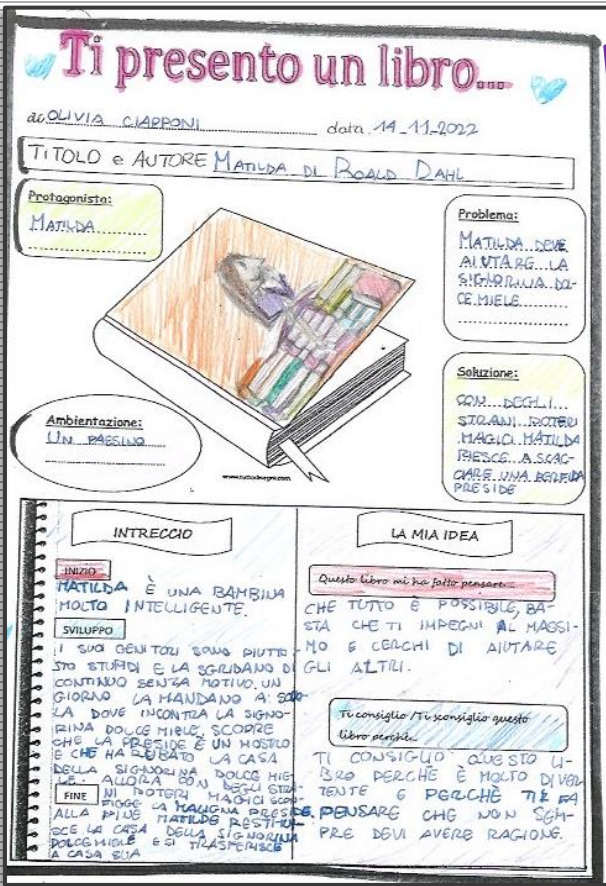 Ti presento un libro...
di OLIVIA CIAPPONI data 14-11-2022
TITOLO e AUTORE MATILDA DI ROALD DAHL
Protagonista:
MATILDA
Problema:
MATILDA DEVE
AIUTARE LA
SIGNORINA DOL-
CE MIELE
Soluzione:
CON DEGLI
STRANI POTERI
MAGICI MATILDA
RIESCE A SCAC-
CIARE UNA PERFIDA
PRESIDE
Ambientazione:
UN PAESINO
www.tuttodisegni.com
INTRECCIO
INIZIO
MATILDA È UNA BAMBINA
MOLTO INTELLIGENTE.
SVILUPPO
I SUOI GENITORI SONO PIUTTO-
STO STUPIDI E LA SGRIDANO DI
CONTINUO SENZA MOTIVO. UN
GIORNO LA MANDANO A SCUO-
LA DOVE INCONTRA LA SIGNO-
RINA DOLCE MIELE, SCOPRE
CHE LA PRESIDE È UN MOSTRO
E CHE HA RUBATO LA CASA
DELLA SIGNORINA DOLCE MIE-
LE. ALLORA CON DEGLI STRA-
NI POTERI MAGICI SCON-
FIGGE LA MALIGNA PRESIDE.
FINE
ALLA FINE MATILDE RESTITUI-
SCE LA CASA DELLA SIGNORINA
DOLCEMIELE E SI TRASFERISCE
A CASA SUA
LA MIA IDEA
Questo libro mi ha fatto pensare...
CHE TUTTO È POSSIBILE, BA-
STA CHE TI IMPEGNI AL MASSI-
MO E CERCHI DI AIUTARE
GLI ALTRI.
Ti consiglio /Ti sconsiglio questo
libro perché...
TI CONSIGLIO QUESTO LI-
BRO PERCHÈ È MOLTO DIVER
TENTE E PERCHÈ TI FA
PENSARE CHE NON SEM-
PRE DEVI AVERE RAGIONE.